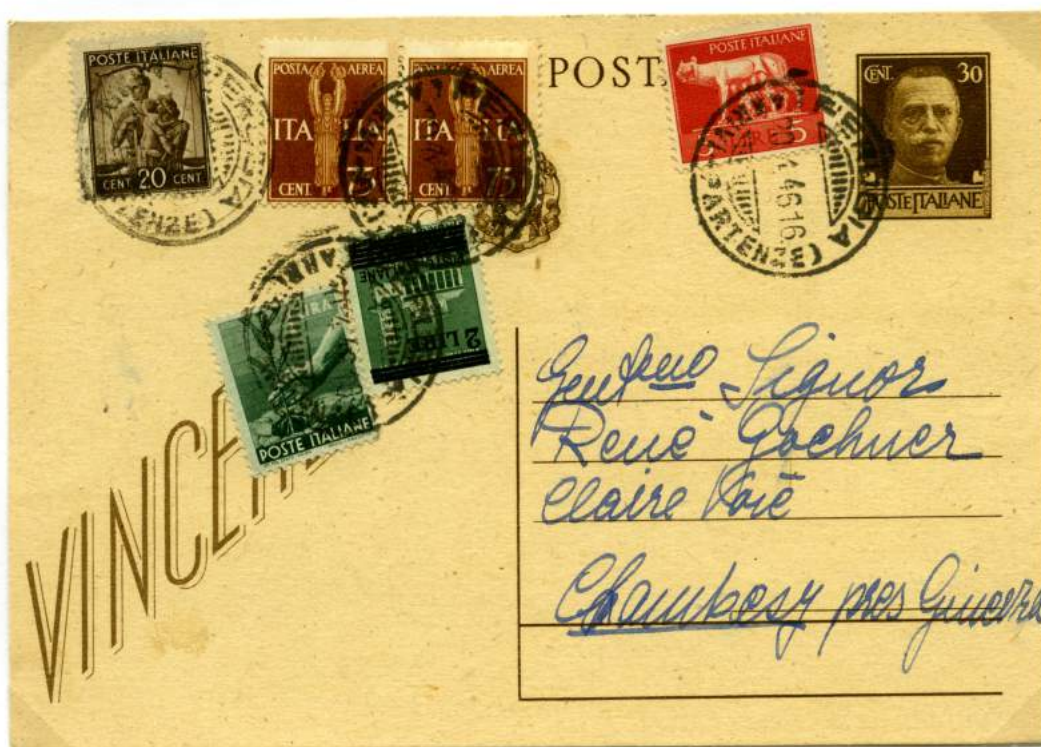 POSTE ITALIANE
CENT 20 CENT
POSTA AEREA
ITALIA
CENT. 75
POSTA AEREA
ITALIA
75
POST
POSTE ITALIANE
5 LIRE 5
CENT. 30
POSTE ITALIANE
PARTENZE)
2 LIRE
LIRA
POSTE ITALIANE
VINCE
Signor
René Gochner
Claire Voie
Chambesy pres Ginevra